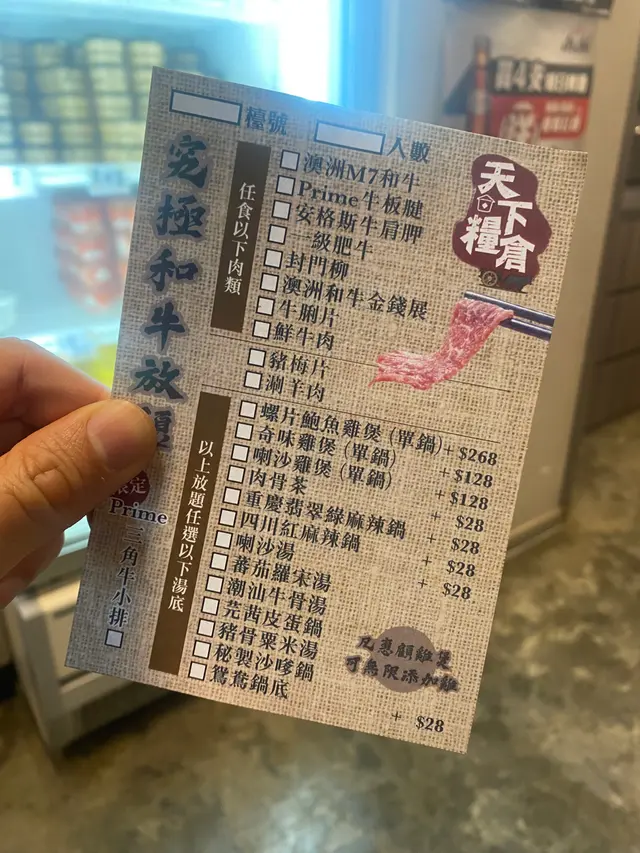 檯號
人數
天下糧倉
究極和牛放題
任食以下肉類
澳洲M7和牛
Prime牛板腱
安格斯牛肩胛
三級肥牛
封門柳
澳洲和牛金錢展
牛脷片
鮮牛肉
豬梅片
涮羊肉
以上放題任選以下湯底
螺片鮑魚雞煲 (單鍋) + $268
奇味雞煲 (單鍋) + $128
喇沙雞煲 (單鍋) + $128
肉骨茶 + $28
重慶翡翠綠麻辣鍋 + $28
四川紅麻辣鍋 + $28
喇沙湯 + $28
蕃茄羅宋湯
潮汕牛骨湯
芫茜皮蛋鍋
豬骨粟米湯
秘製沙嗲鍋
鴛鴦鍋底 + $28
限定
Prime
三角牛小排
凡惠顧雞煲
可無限添加雞
買4安